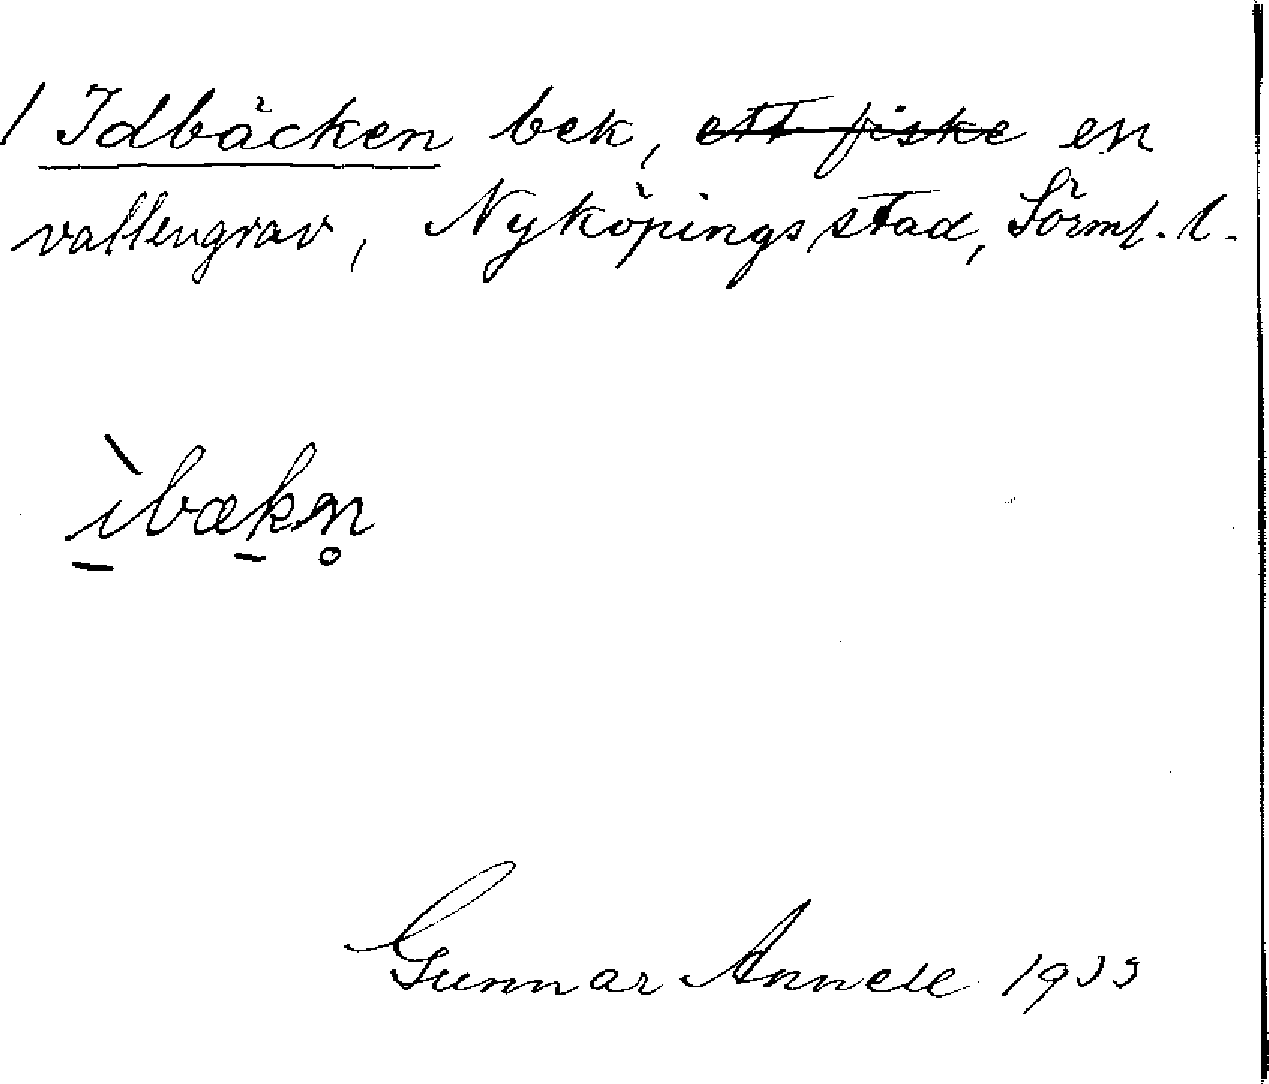 / Idbäcken bek, ett fiske en
vallengrav, Nyköpings stad, Sörml. l.
ìbækn̥
Gunnar Annell 1933